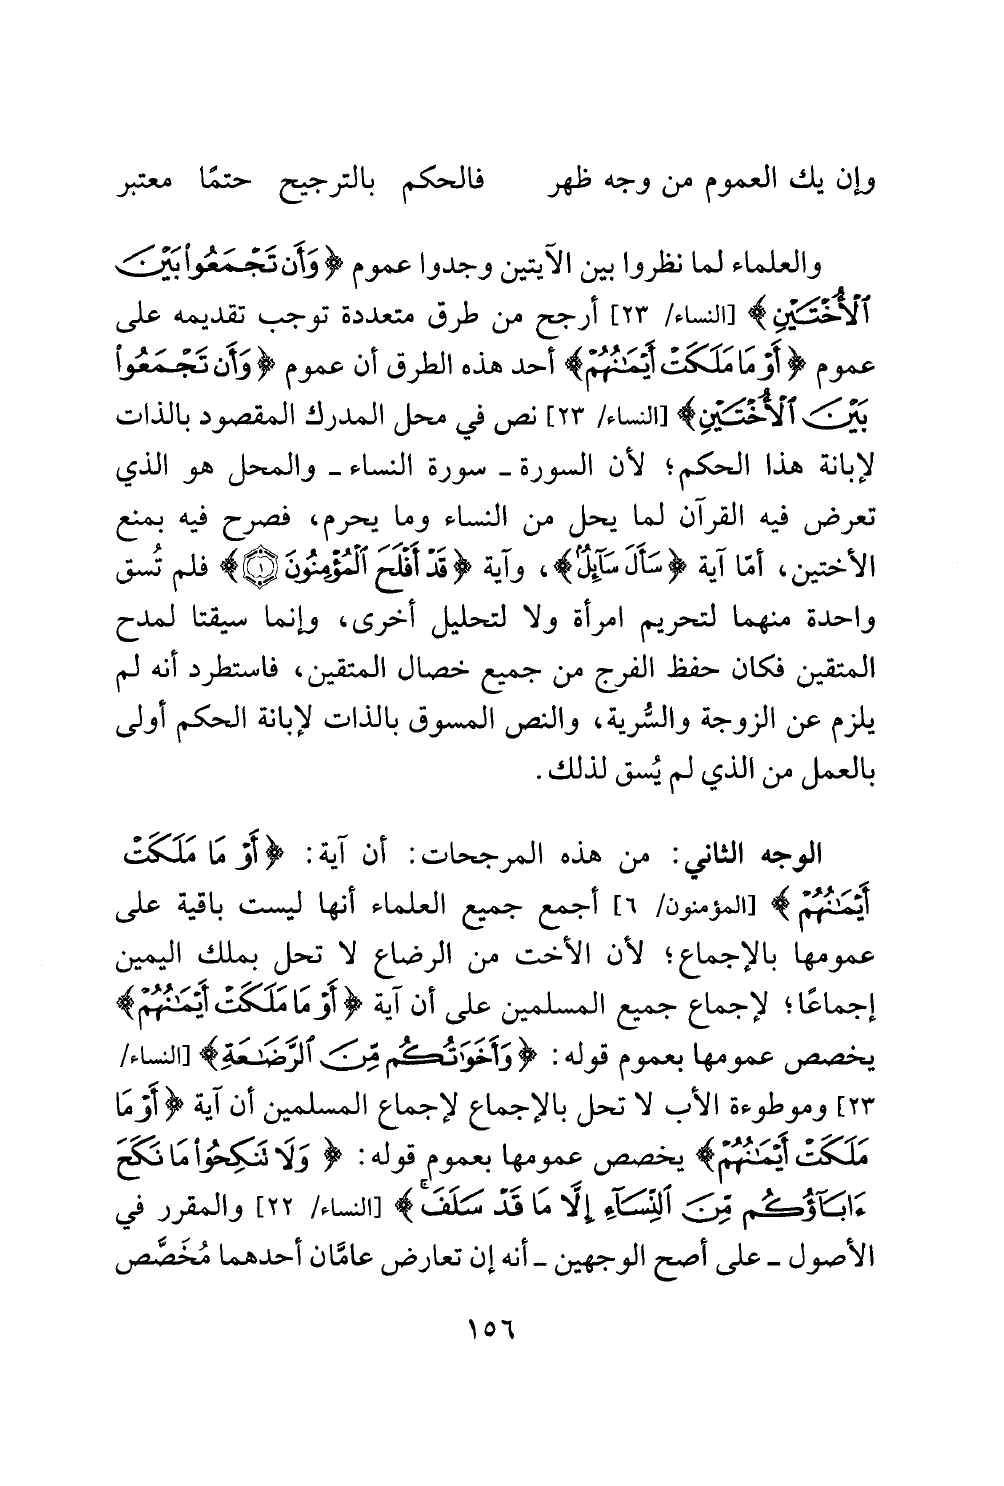 وإن يك العموم من وجه ظهر فالحكم بالترجيح حتمًا معتبر
والعلماء لما نظروا بين الآيتين وجدوا عموم ﴿وَأَن تَجْمَعُوا۟ بَيْنَ
ٱلْأُخْتَيْنِ﴾ [النساء/ ٢٣] أرجح من طرق متعددة توجب تقديمه على
عموم ﴿أَوْ مَا مَلَكَتْ أَيْمَٰنُهُمْ﴾ أحد هذه الطرق أن عموم ﴿وَأَن تَجْمَعُوا۟
بَيْنَ ٱلْأُخْتَيْنِ﴾ [النساء/ ٢٣] نص في محل المدرك المقصود بالذات
لإبانة هذا الحكم؛ لأن السورة ـ سورة النساء ـ والمحل هو الذي
تعرض فيه القرآن لما يحل من النساء وما يحرم، فصرح فيه بمنع
الأختين، أمّا آية ﴿سَأَلَ سَآئِلٌۢ﴾، وآية ﴿قَدْ أَفْلَحَ ٱلْمُؤْمِنُونَ ١﴾ فلم تُسق
واحدة منهما لتحريم امرأة ولا لتحليل أخرى، وإنما سيقتا لمدح
المتقين فكان حفظ الفرج من جميع خصال المتقين، فاستطرد أنه لم
يلزم عن الزوجة والسُّرية، والنص المسوق بالذات لإبانة الحكم أولى
بالعمل من الذي لم يُسق لذلك.
الوجه الثاني: من هذه المرجحات: أن آية: ﴿أَوْ مَا مَلَكَتْ
أَيْمَٰنُهُمْ﴾ [المؤمنون/ ٦] أجمع جميع العلماء أنها ليست باقية على
عمومها بالإجماع؛ لأن الأخت من الرضاع لا تحل بملك اليمين
إجماعًا؛ لإجماع جميع المسلمين على أن آية ﴿أَوْ مَا مَلَكَتْ أَيْمَٰنُهُمْ﴾
يخصص عمومها بعموم قوله: ﴿وَأَخَوَٰتُكُم مِّنَ ٱلرَّضَٰعَةِ﴾ [النساء/
٢٣] وموطوءة الأب لا تحل بالإجماع لإجماع المسلمين أن آية ﴿أَوْ مَا
مَلَكَتْ أَيْمَٰنُهُمْ﴾ يخصص عمومها بعموم قوله: ﴿وَلَا تَنكِحُوا۟ مَا نَكَحَ
ءَابَآؤُكُم مِّنَ ٱلنِّسَآءِ إِلَّا مَا قَدْ سَلَفَ ۚ﴾ [النساء/ ٢٢] والمقرر في
الأصول ـ على أصح الوجهين ـ أنه إن تعارض عامَّان أحدهما مُخَصَّص
١٥٦